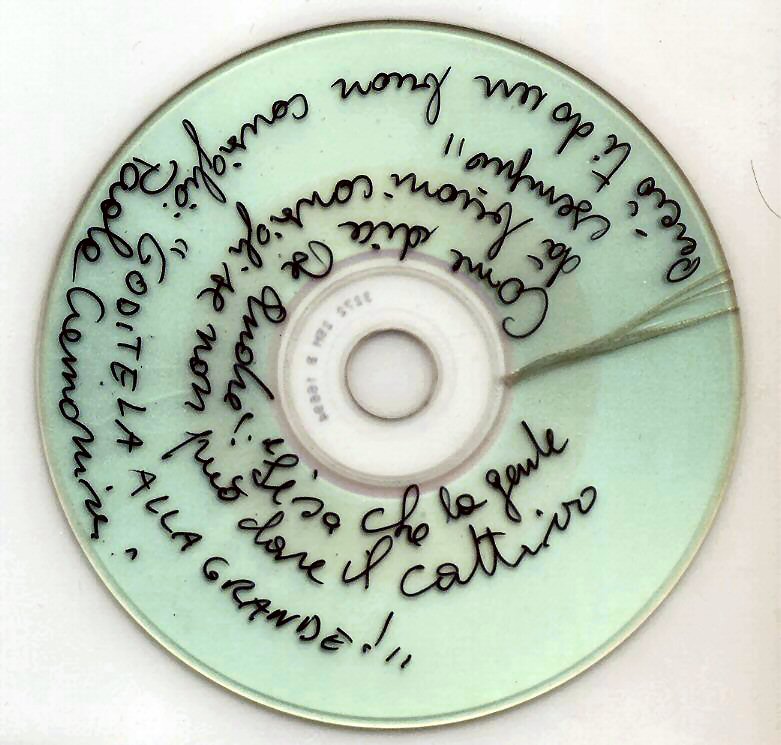 Come dice De Andrè: "Si sa che la gente
dà buoni consigli se non può dare il cattivo
esempio"
Perciò ti do un buon consiglio: "GODITELA ALLA GRANDE!"
Paola Cremonini